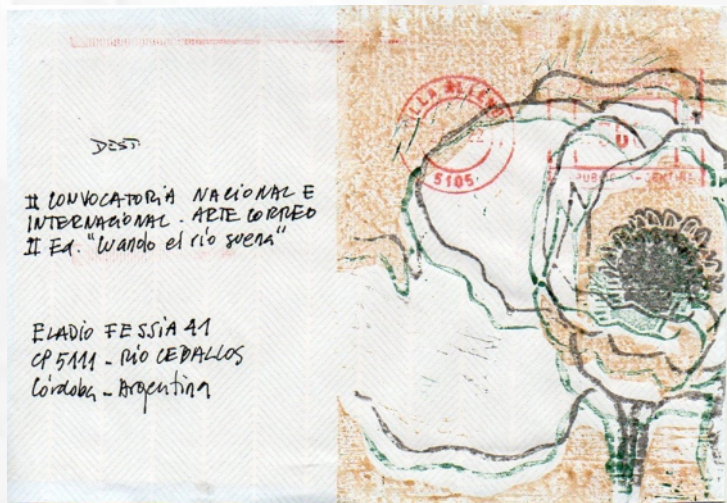 DEST.
II CONVOCATORIA NACIONAL E
INTERNACIONAL. ARTE CORREO
II Ed. "Cuando el río suena"
ELADIO FESSIA 41
CP 5111 - RÍO CEBALLOS
Córdoba - Argentina
VILLA ALLENDE
5105